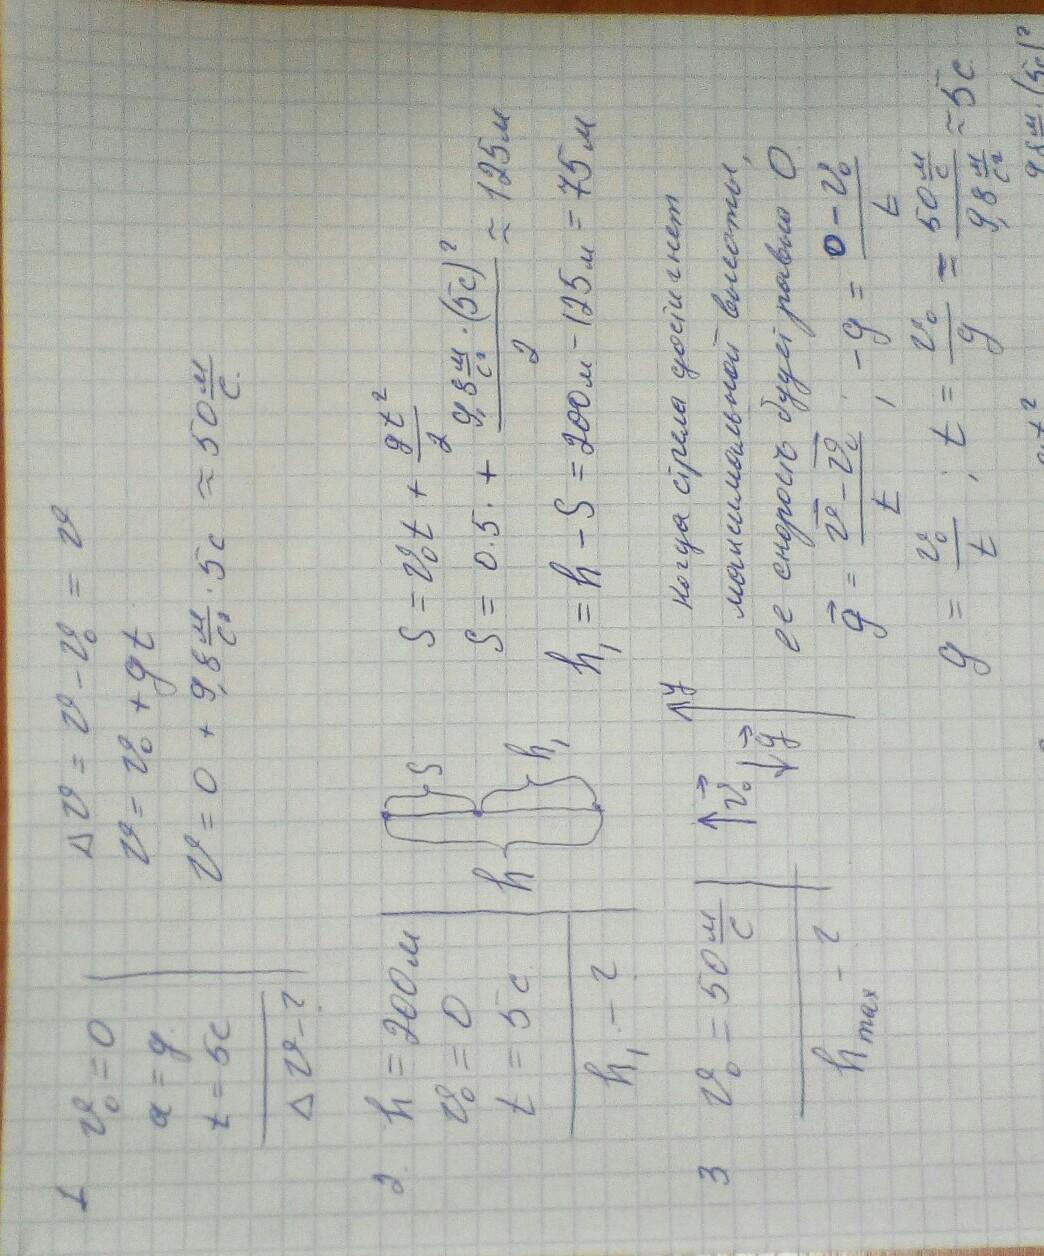 1
υ₀ = 0
a = g
t = 5с
Δυ - ?
Δυ = υ - υ₀ = υ
υ = υ₀ + gt
υ = 0 + 9,8 м/с² · 5с ≈ 50 м/с
2
h = 200м
υ₀ = 0
t = 5с
h₁ - ?
h
S
h₁
S = υ₀t + gt²/2
S = 0·5· + 9,8 м/с² · (5с)²/2 ≈ 125м
h₁ = h - S = 200м - 125м = 75м
3
υ₀ = 50 м/с
hmax - ?
υ₀
g
y
когда стрела достигнет
максимальной высоты,
ее скорость будет равна 0
g = υ - υ₀/t ; -g = 0 - υ₀/t
g = υ₀/t ; t = υ₀/g = 50 м/с / 9,8 м/с² ≈ 5с